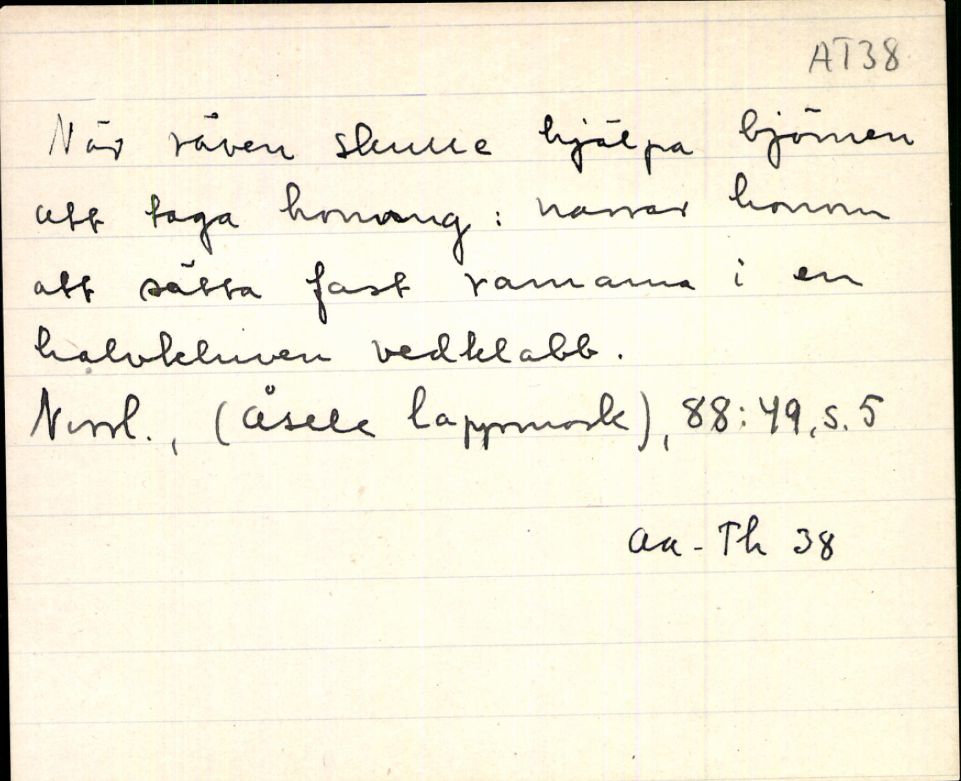 AT38
När räven skulle hjälpa björnen
att taga honung: narrar honom
att sätta fast ramarna i en
halvkluven vedklabb.
Norrl., (Åsele lappmark), 88:49, s. 5
Aa-Th 38